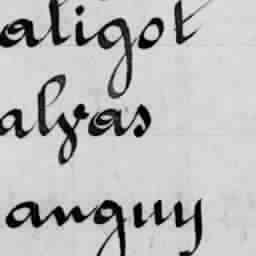 aligot
alyas
anguy